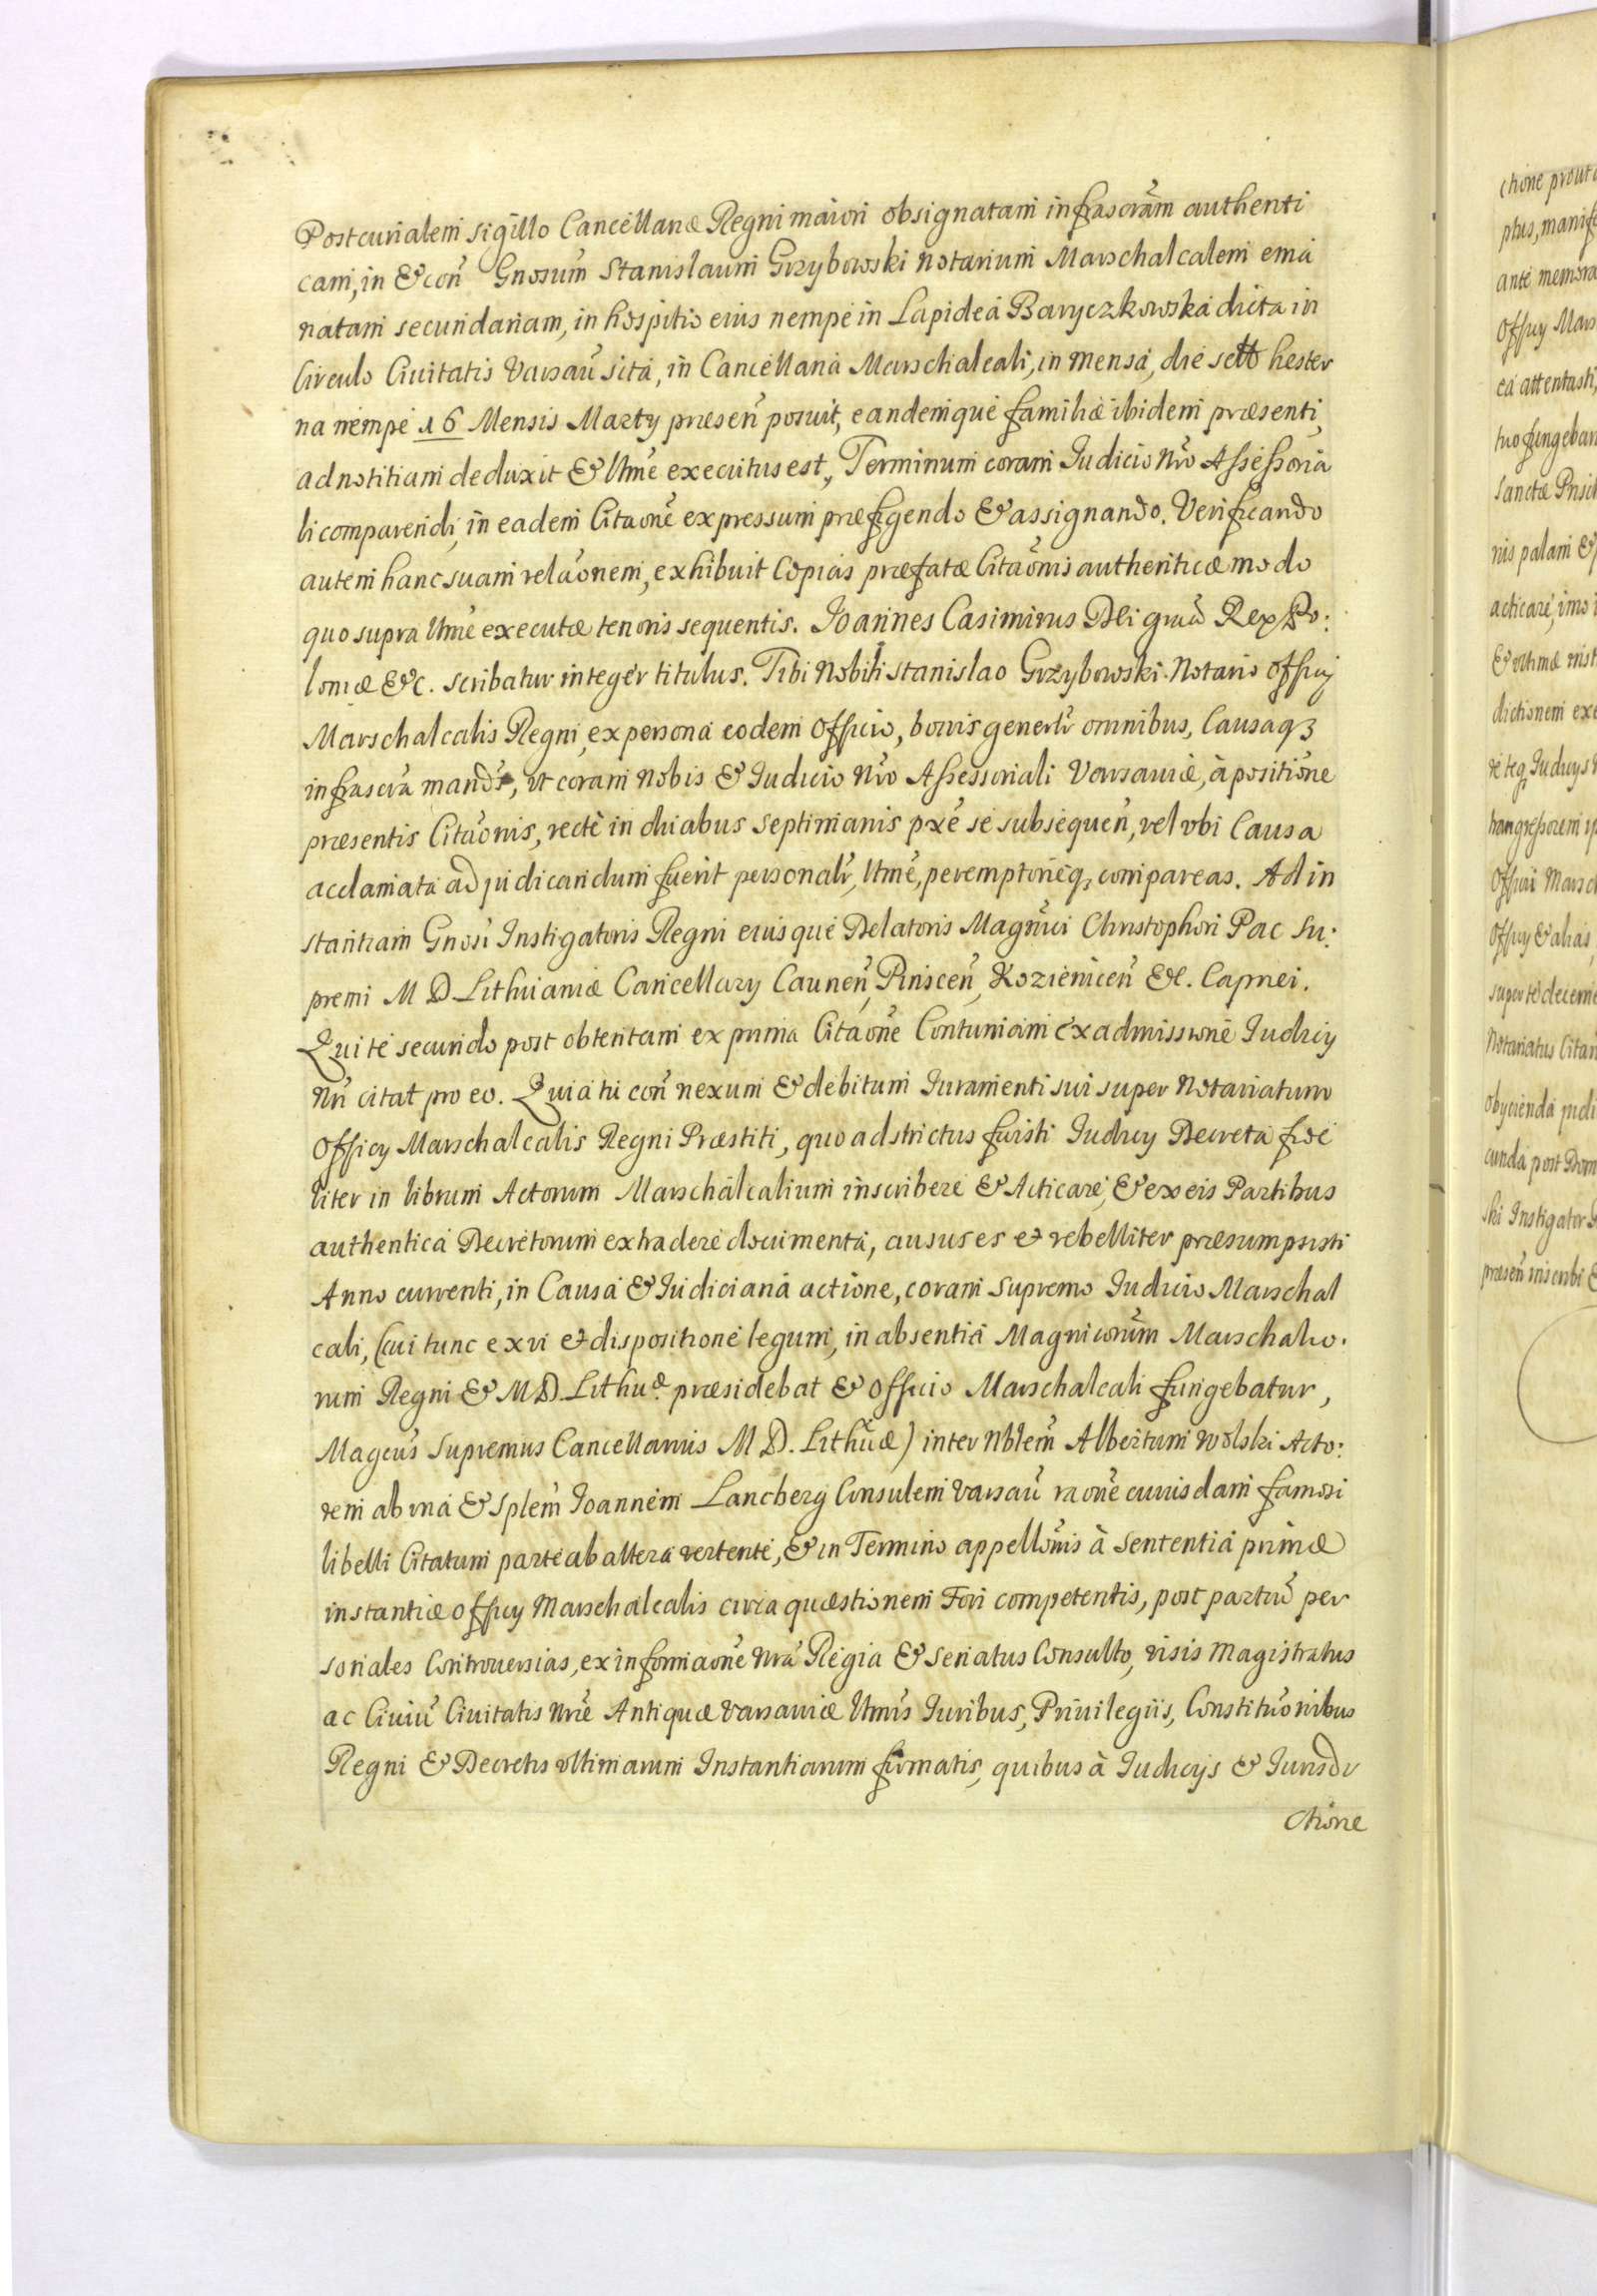 Postcurialem sigillo Cancellariæ Regni maiori obsignatam infrascrãm authenti
cam, in & con̄ Gnosum̄ Stanislaum Grzybowski Notarium Marschalcalem ema
natam secundariam, in hospitio eius nempe in Lapidea Baryczkowska dicta in
Circulo Ciuitatis Varsau̅ sita, in Cancellaria Marschalcali, in mensa, die sctto hester
na nempe 16 Mensis Martij præsen̄ posuit, eandemque familiæ ibidem præsenti,
ad notitiam deduxit & ltme executus est, Terminum coram Iudicio Nro Assessoria
li comparendi, in eadem Citaone̅ expressum præfigendo & assignando. Verificando
autem hanc suam relaõnem, exhibuit Copias præfatæ Citaõnis authenticæ modo
quo supra ltme executæ tenoris sequentis. Ioannes Casimirus Dei gratia Rex Po:
loniæ &c. scribatur integer titulus. Tibi Nobili Stanislao Grzybowski Notario Officij
Marschalcalis Regni, ex persona eodem Officio, bonis generlr omnibus, Causaq3
infrascra mandˢ, vt coram Nobis & Iudicio Nro Assessoriali Varsauiæ, à positione
præsentis Citaõnis, recte in diuabus septimanis pxe se subsequen̄, vel vbi Causa
acclamata ad judicandum fuerit personalr, ltme, peremptorieq3 compareas. Ad in
stantiam Gnosi Instigatoris Regni eiusque Delatoris Magnici Christophori Pac Su:
premi M D Lithuaniæ Cancellarij Caunen̄, Pinscen̄, Kozienicen̄ &c. Capnei.
Qui te secundo post obtentam ex prima Citaone̅ Contumiam ex admissione Iudicij
Nri citat pro eo. Quia tu con̄ nexum & debitum Iuramenti sui super Notariatum
Officij Marschalcalis Regni Præstiti, quo adstrictus fuisti Iudicij Decreta fide
liter in librum Actorum Marschalcalium inscribere & Acticare, & ex eis Partibus
authentica Decretorum extradere documenta, ausus es et rebelliter præsumpsisti
Anno currenti, in Causa & Iudiciaria actione, coram Supremo Iudicio Marschal
cali, (cui tunc ex vi et dispositione legum, in absentia Magnicorum̄ Marschalco.
rum Regni & M D. Lithuæ præsidebat & Officio Marschalcali fungebatur,
Magcus Supremus Cancellarius M D. Lithuæ) inter Nblem̄ Albertum Wolski Acto:
rem ab vna & Splem̄ Ioannem Lancberg Consulem Varsau̅ raone̅ cuiusdam famosi
libelli Citatum parte ab altera vertente, & in Termino appellõnis à Sententia primæ
instantiæ Officij Marschalcalis circa quæstionem Fori competentis, post partiū per
sonales Controuersias, ex informaone̅ Nra Regia & Senatus Consulto, visis Magistratus
ac Ciuiu̅ Ciuitatis Nræ Antiquæ Varsauiæ ltmis Iuribus, Priuilegiis, Constituõnibus
Regni & Decretis vltimarum Instantiarum firmatis, quibus à Iudicijs & Iurisdi
ctione